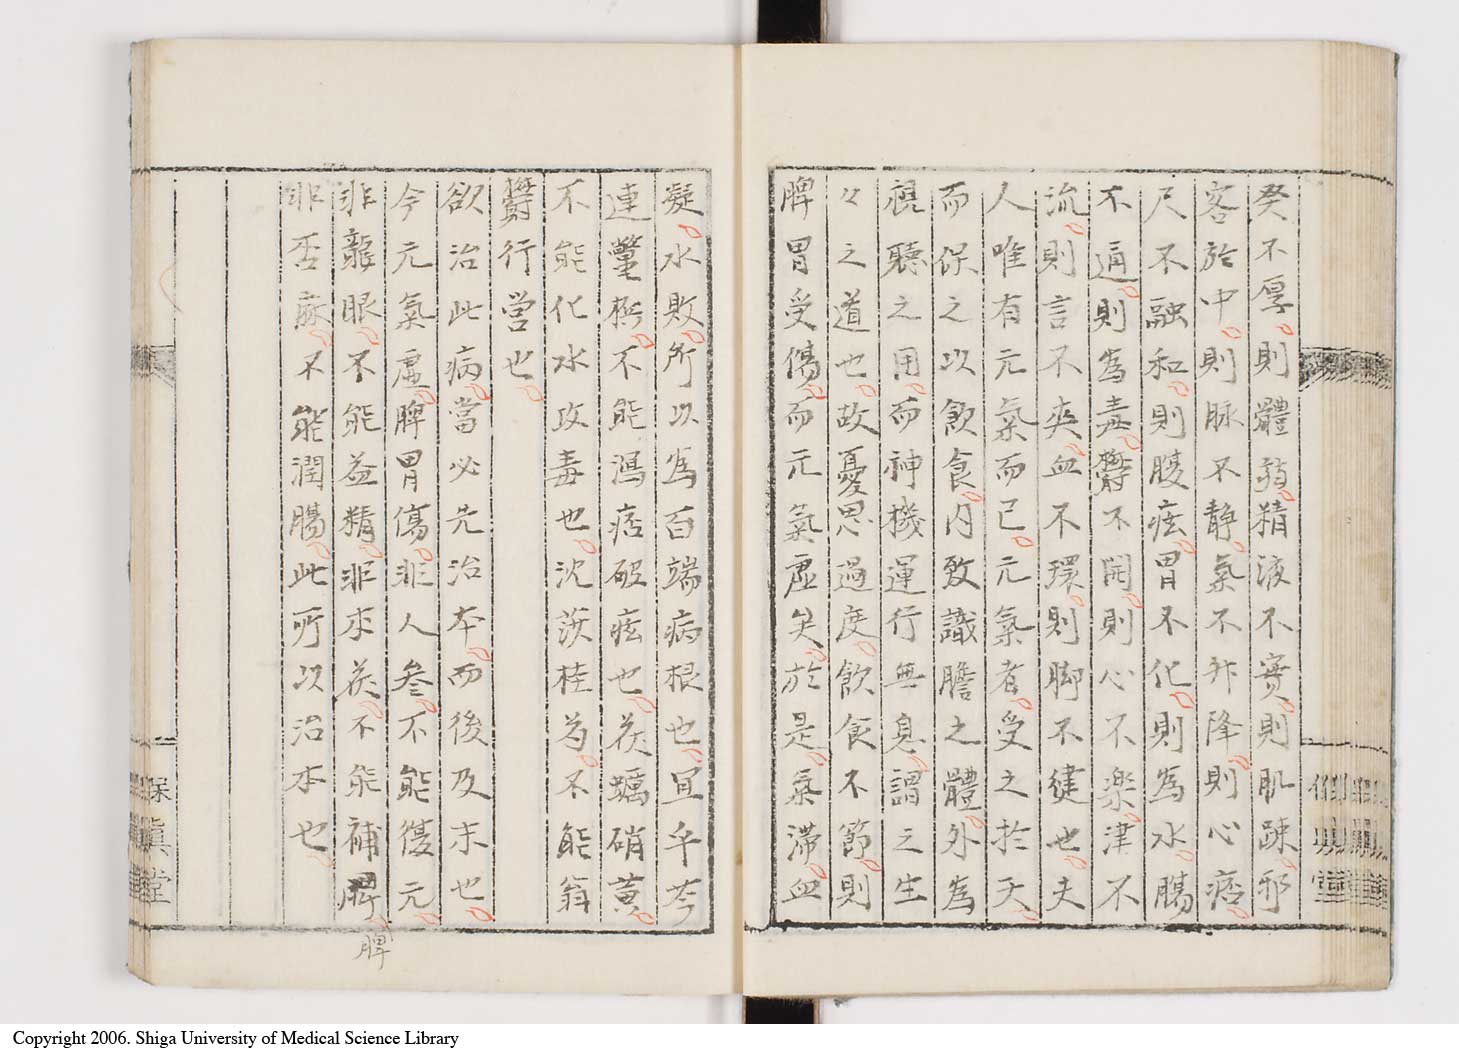 癸不厚則體弱精液不實則肌疎邪
客於中則脉不靜氣不升降則心痞
尺不融和則腹痃胃不化則爲水腸
不通則爲毒欝不開則心不楽津不
流則言不爽血不環則脚不健也夫
人唯有元氣而已元氣者受之於天
而保之以飲食内致識膽之體外爲
視聽之用而神機運行無息謂之生
々之道也故憂思過度飲食不節則
脾胃受傷而元氣虚矣於是氣滞血
凝水敗所以爲百端病根也宜乎芩
連鼈檳不能瀉痞破痃也茯蠣硝黄
不能化水攻毒也沈莪桂芍不能翁
欝行営也
欲治此病當必先治本而後及末也
今元氣虚脾胃傷非人參不能復元
非龍眼不能益精非朮茯不能補脾
脾
非否麻不能潤腸此所以治本也
保眞堂
Copyright 2006. Shiga University of Medical Science Library